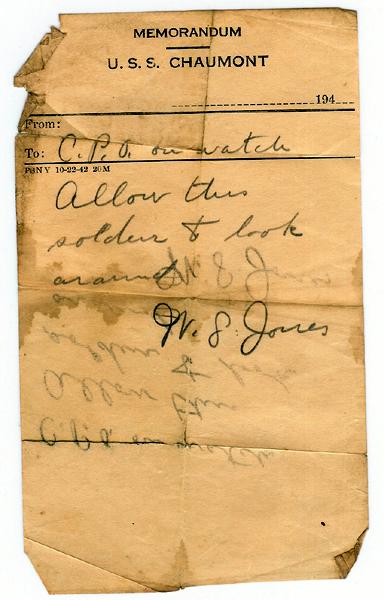 MEMORANDUM
U. S. S. CHAUMONT
194
From:
To: C.P.O. on watch
PSNY 10-22-42 20M
Allow this
soldier to look
around
W. S. Jones